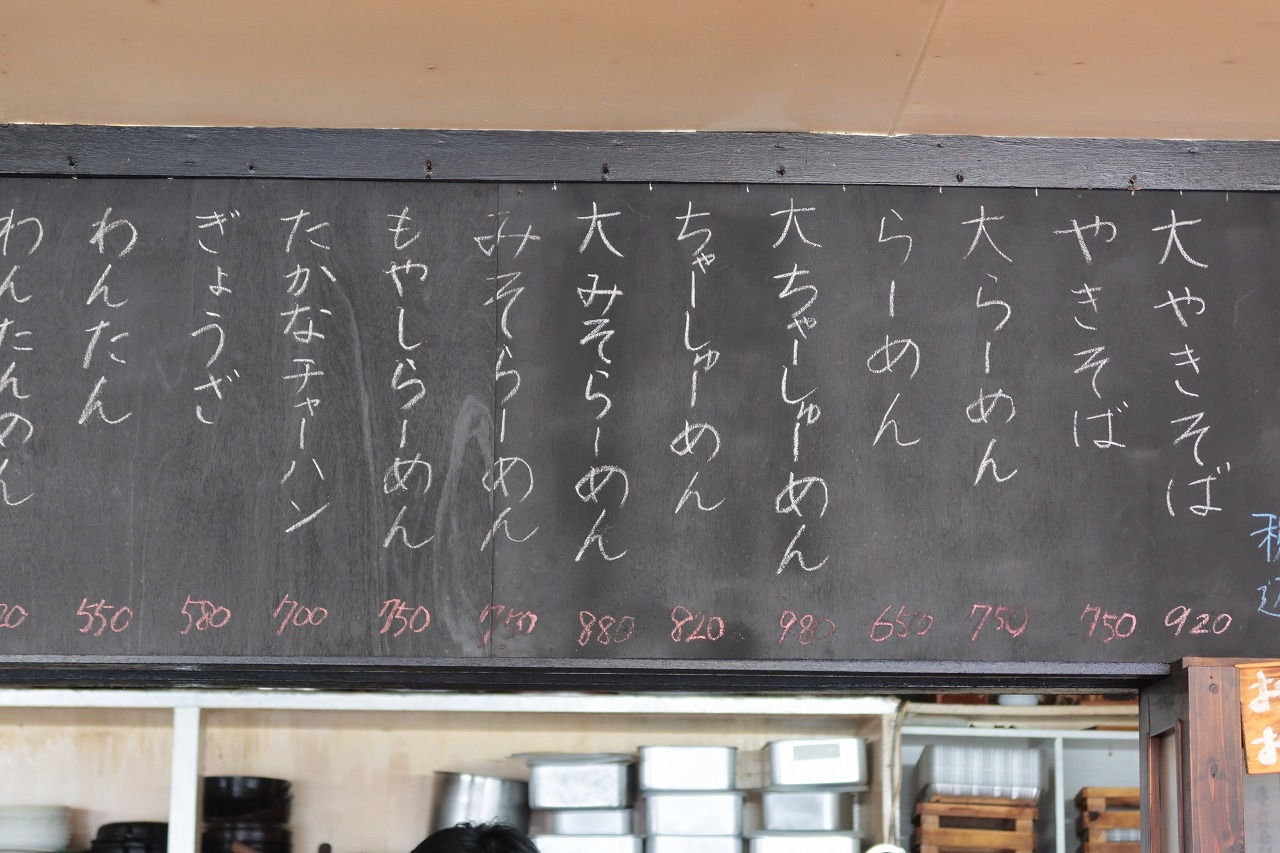 大やきそば 920
やきそば 750
大らーめん 750
らーめん 650
大ちゃーしゅーめん 980
ちゃーしゅーめん 820
大みそらーめん 880
みそらーめん 750
もやしらーめん 750
たかなチャーハン 700
ぎょうざ 580
わんたん 550
わんたんめん
税込